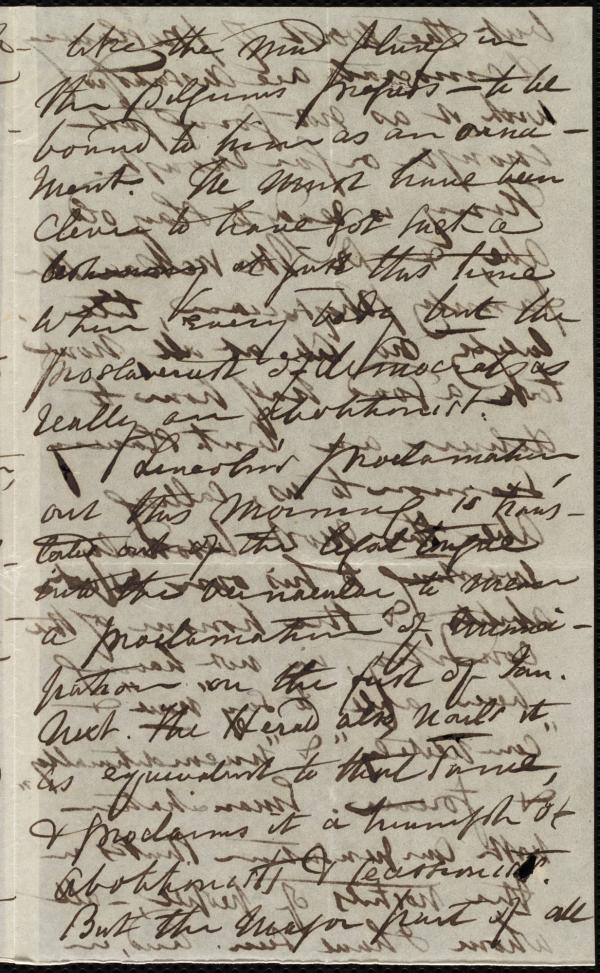 like the mud flung in
the pilgrims progress — to be
bound to him as an orna-
ment. He must have been
clever to have got such a
at just this time
when every body but the
proslaveryest of democrats is
really an abolitionist.
Lincoln's proclamation,
out this morning, is trans-
lated out of the legal tongue
into the vernacular to mean
a proclamation of emanci-
pation on the first of Jan.
next. The Herald also hails it
as equivalent to that same,
& proclaims it a triumph of
abolitionists &
But the major part of all